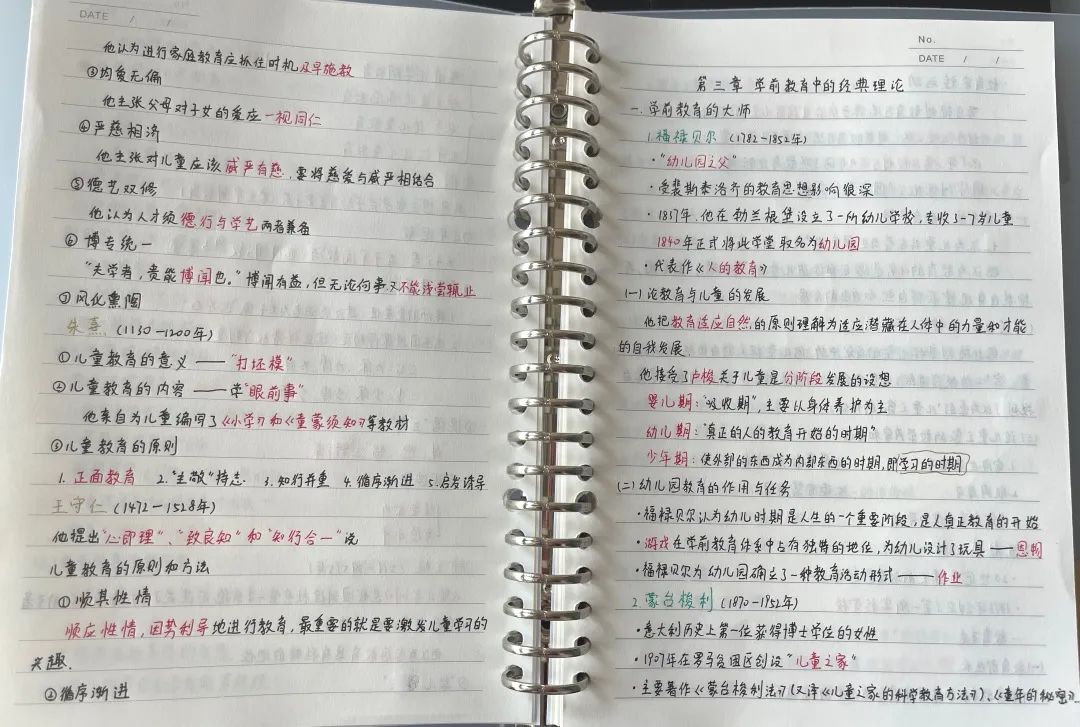 DATE / /
他认为进行家庭教育应抓住时机及早施教
③均爱无偏
他主张父母对子女的爱应一视同仁
④严慈相济
他主张对儿童应该威严有慈,要将慈爱与威严相结合
⑤德艺双修
他认为人才须德行与学艺两者兼备
⑥博专统一
“夫学者,贵能博闻也。”博闻有益,但无论何事又不能浅尝辄止
⑦风化熏陶
朱熹(1130-1200年)
①儿童教育的意义——“打坯模”
②儿童教育的内容——学“眼前事”
他亲自为儿童编写了《小学》和《童蒙须知》等教材
③儿童教育的原则
1.正面教育 2.“主敬”持志 3.知行并重 4.循序渐进 5.启发诱导
王守仁(1472-1528年)
他提出“心即理”、“致良知”和“知行合一”说
儿童教育的原则和方法
①顺其性情
顺应性情,因势利导地进行教育,最重要的就是要激发儿童学习的
兴趣.
②循序渐进
No.
DATE / /
第三章 学前教育中的经典理论
一.学前教育的大师
1.福禄贝尔(1782-1852年)
·“幼儿园之父”
·受裴斯泰洛齐的教育思想影响很深
·1837年,他在勃兰根堡设立了一所幼儿学校,专收3-7岁儿童
1840年正式将此学堂取名为幼儿园
·代表作《人的教育》
(一)论教育与儿童的发展
他把教育适应自然的原则理解为适应潜藏在人体中的力量和才能
的自我发展.
他接受了卢梭关于儿童是分阶段发展的设想
婴儿期:“吸收期”,主要以身体养护为主
幼儿期:“真正的人的教育开始的时期”
少年期:使外部的东西成为内部东西的时期,即学习的时期
(二)幼儿园教育的作用与任务
·福禄贝尔认为幼儿时期是人生的一个重要阶段,是人真正教育的开始
·游戏在学前教育体系中占有独特的地位,为幼儿设计了玩具——恩物
·福禄贝尔为幼儿园确立了一种教育活动形式——作业
2.蒙台梭利(1870-1952年)
·意大利历史上第一位获得博士学位的女性
·1907年在罗马贫困区创设“儿童之家”
·主要著作《蒙台梭利法》(又译《儿童之家的科学教育方法》)、《童年的秘密》